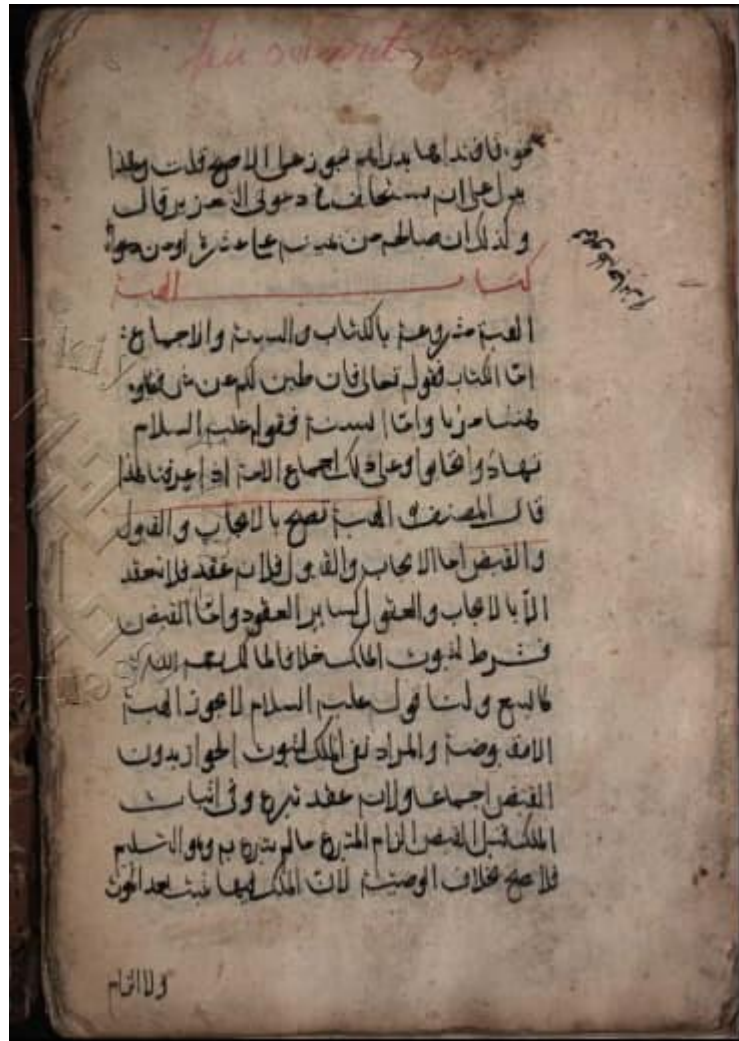 فافتداها بدراهم يجوز على الاصح قلت وهذا
يدل على ان يستحلف في دعوى التعزير قال
وكذلك ان صالحه من يمينه على عشرة او من دعواه
كتاب الهبة
الهبة مشروعة بالكتاب والسنة والاجماع
امّا الكتاب فقوله تعالى فان طبن لكم عن شئ فكلوه
هنيئا مريا وامّا السنة فقوله عليه السلام
تهادوا تحابوا وعلى ذلك اجماع الامة اذا عرفنا هذا
قال المصنف الهبة تصح بالايجاب والقبول
والقبض اما الايجاب والقبول فلانه عقد فلا ينعقد
الّا بالايجاب والقبول كساير العقود وامّا القبض
فشرط لثبوت الملك خلافا لمالك رحمه الله
كالبيع ولنا قوله عليه السلام لا يجوز الهبة
الا مقبوضة والمراد نفى الملك لثبوت الجواز بدون
القبض اجماعا ولانه عقد تبرع وفى اثبات
الملك قبل القبض الزام المتبرع ما لم يتبرع به وهو التسليم
فلا يصح بخلاف الوصية لانّ الملك فيها يثبت بعد الموت
ولا الزام